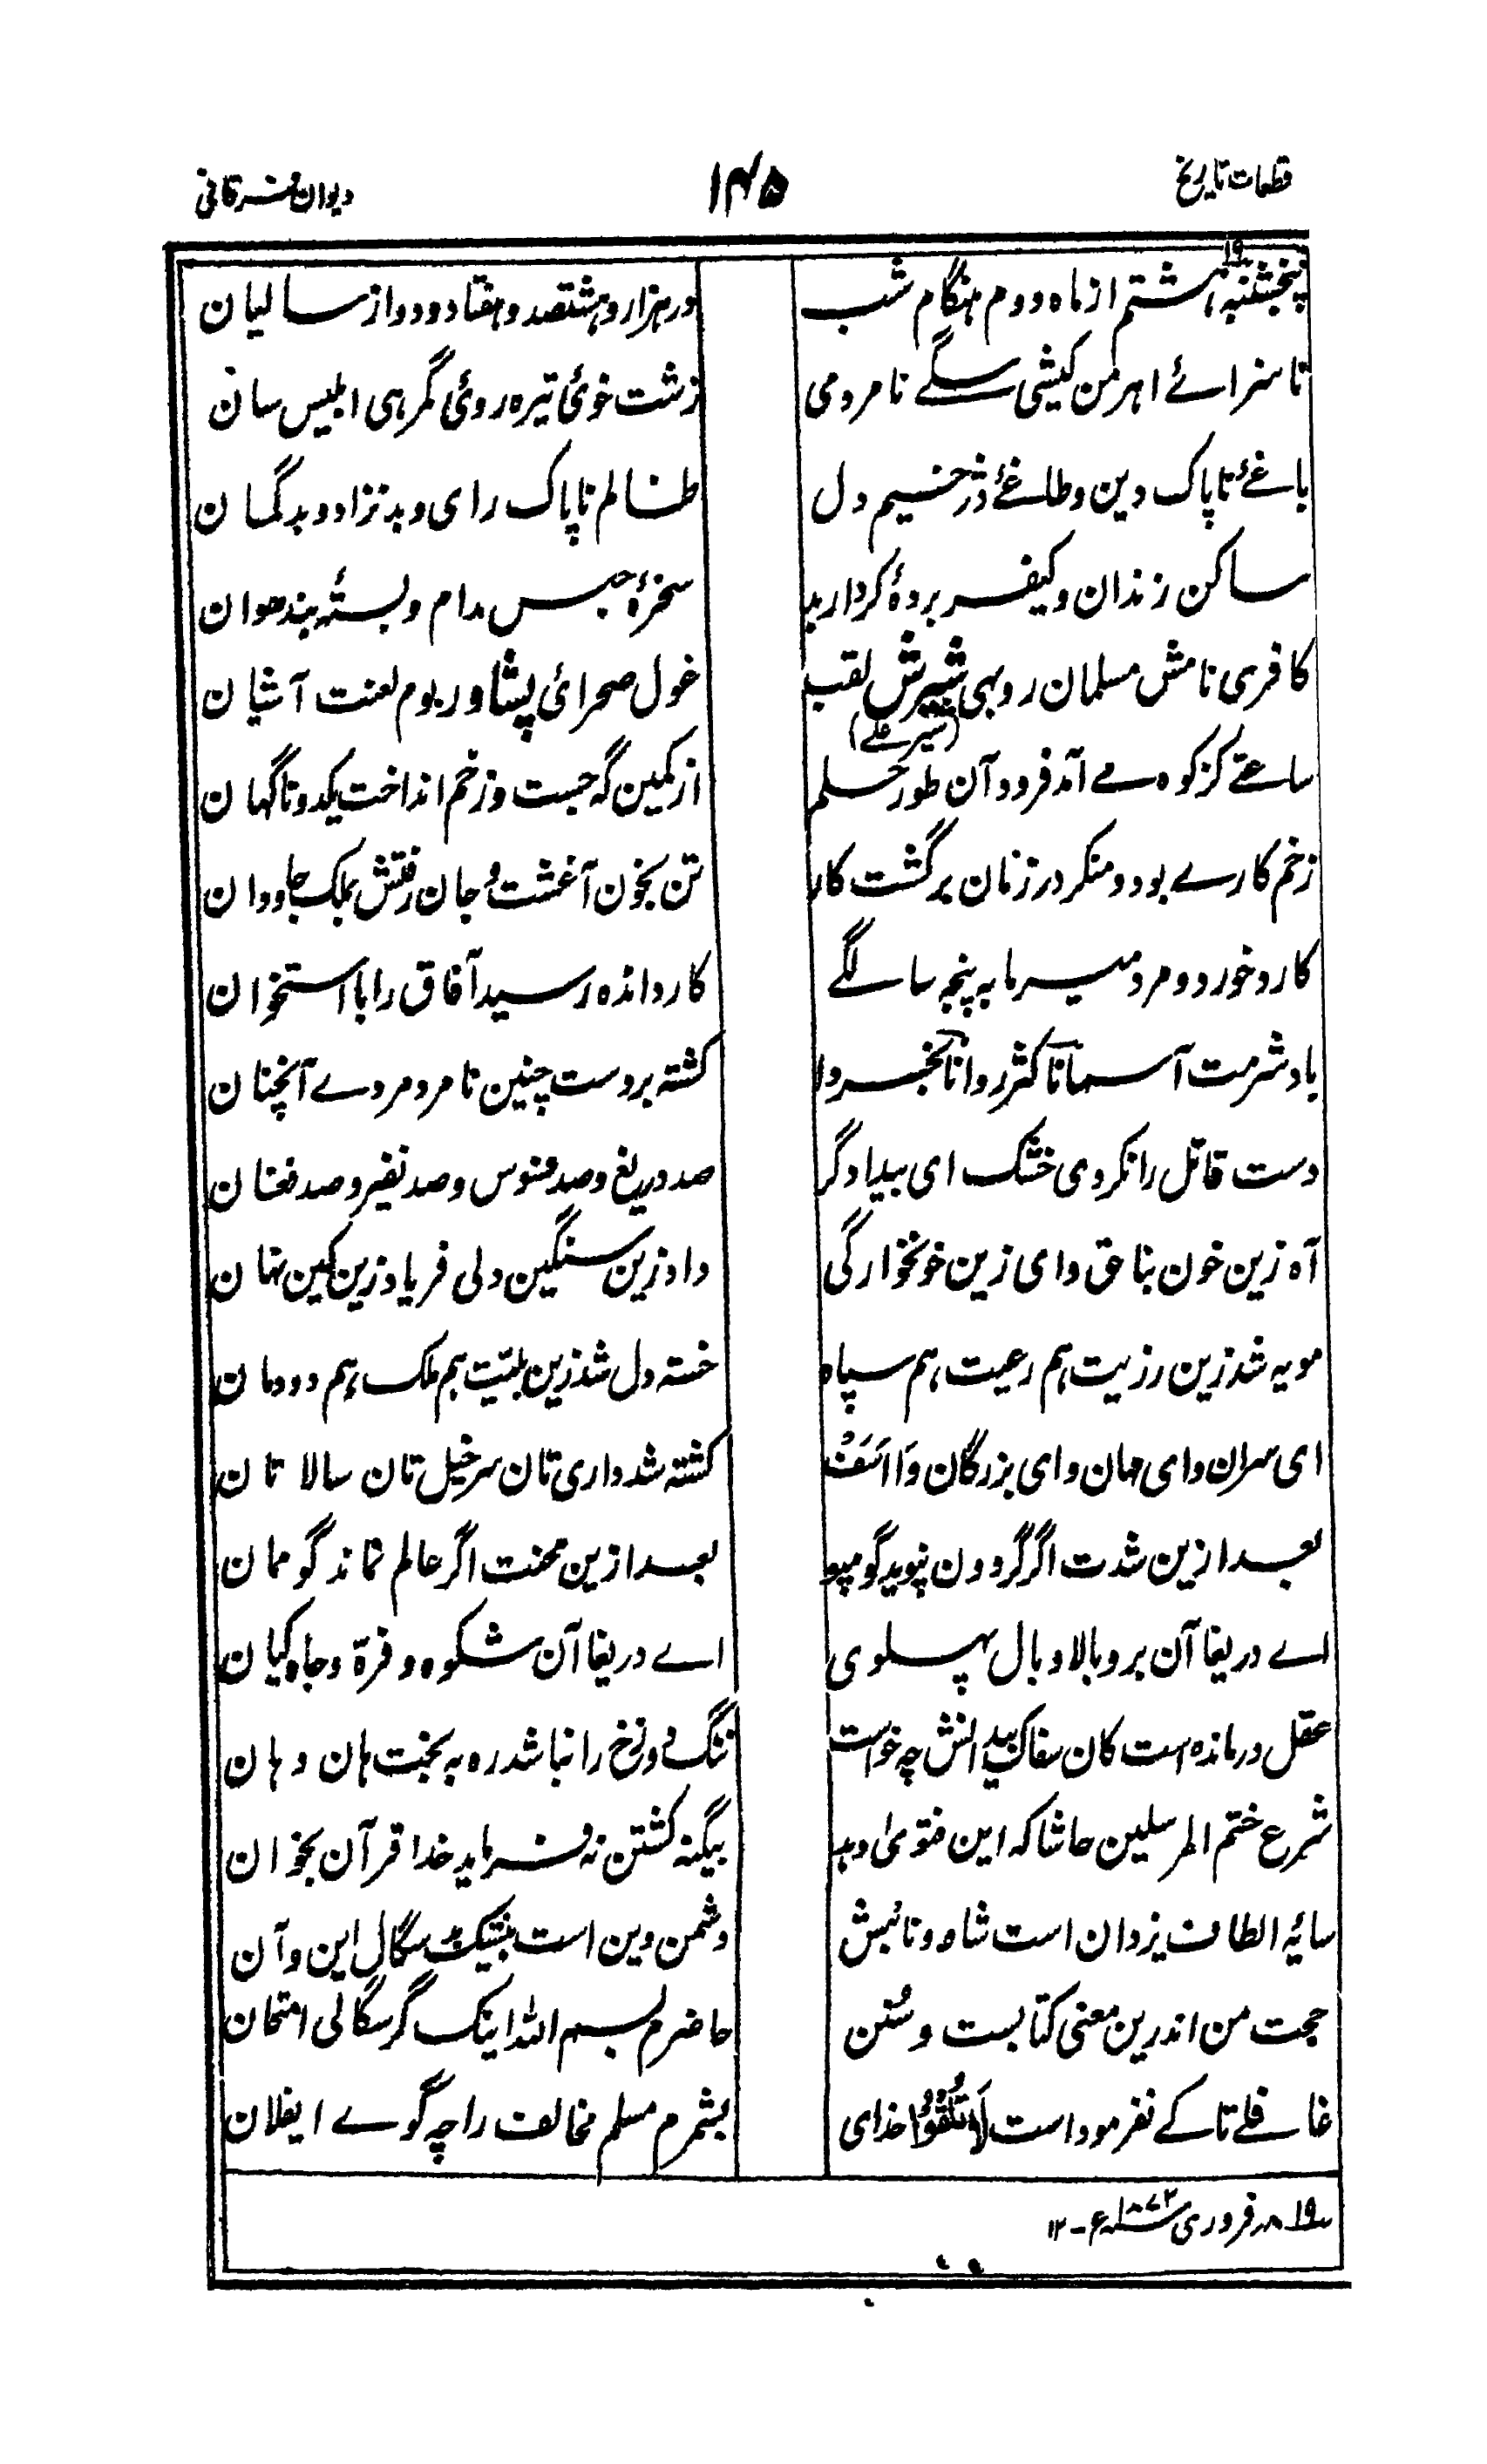 قطعات تاریخ ۱۴۵ دیوان فرقانی
پنجشنبه ۱۹ هشتم از ماه دوم هنگام شب در هزار و هشتصد و هفتاد و دو از سالیان
ناسزائے اهرمن کیشی سگے نامردمی زشت خوئ تیره روئ گمرهی ابلیس سان
باغئ ناپاک دین و طاغئ دژخیم دل ظالم ناپاک رای و بدنژاد و بدگمان
ساکن زندان و کیفر بردهٔ کردار بد سخرهٔ حبس مدام و بستهٔ بند هوان
کافری نامش مسلمان روبهی شیرش لقب غول صحرائ پشاور بوم لعنت آشیان
(شیر علے)
ساعتے کز کوه مے آمد فرود آن طور حلم از کمین گه جست و زخم انداخت یکدو ناگهان
زخم کارے بود و منکر در زمان برگشت کار تن بخون آغشت و جان رفتش بملک جاودان
کارد خورد و مرد میر ما به پنجه سالگے کارد انده رسید آفاق را با استخوان
باد شرمت آسمانا کژروانا کجروا کشته بر دست چنین نامرد مردے آنچنان
دست قاتل را نکردی خشک ای بیدادگر صد دریغ و صد فسوس و صد نفیر و صد فغان
آه زین خون بناحق وای زین خونخوارگی داد زین سنگین دلی فریاد زین کین نهان
مویه شد زین رزیت هم رعیت هم سپاه خسته دل شد زین بلیّت هم ملک هم دودمان
ای سران وای مهان وای بزرگان وَااَسَفْ کشته شد داری تان سرخیل تان سالار تان
بعد ازین شدت اگر گردون نپوید گو مپو بعد ازین محنت اگر عالم نماند گو ممان
اے دریغا آن بر و بالا و بال پهلوی اے دریغا آن شکوه و فرّه و جاه کیان
عقل درمانده است کان سفاک بیدانش چه خواست ننگ دوزخ را نباشد ره به بخبت هان و هان
شرع ختم المرسلین حاشا که این فتویٰ دهد بیگنه کشتن نفرماید خدا قرآن بخوان
سایهٔ الطاف یزدان است شاه و نائبش دشمن دین است بیشک بدسگال این و آن
حجت من اندرین معنی کتابست و سُنن حاضرم بسم الله اینک گر سگالی امتحان
غافلے تا کے نفرمود است لَا تُلْقُوْا خدای بشمرم مسلم مخالف را چه گوے ایفلان
۱۹ ۸ فروری سنه ۱۸۷۲ء - ۱۲